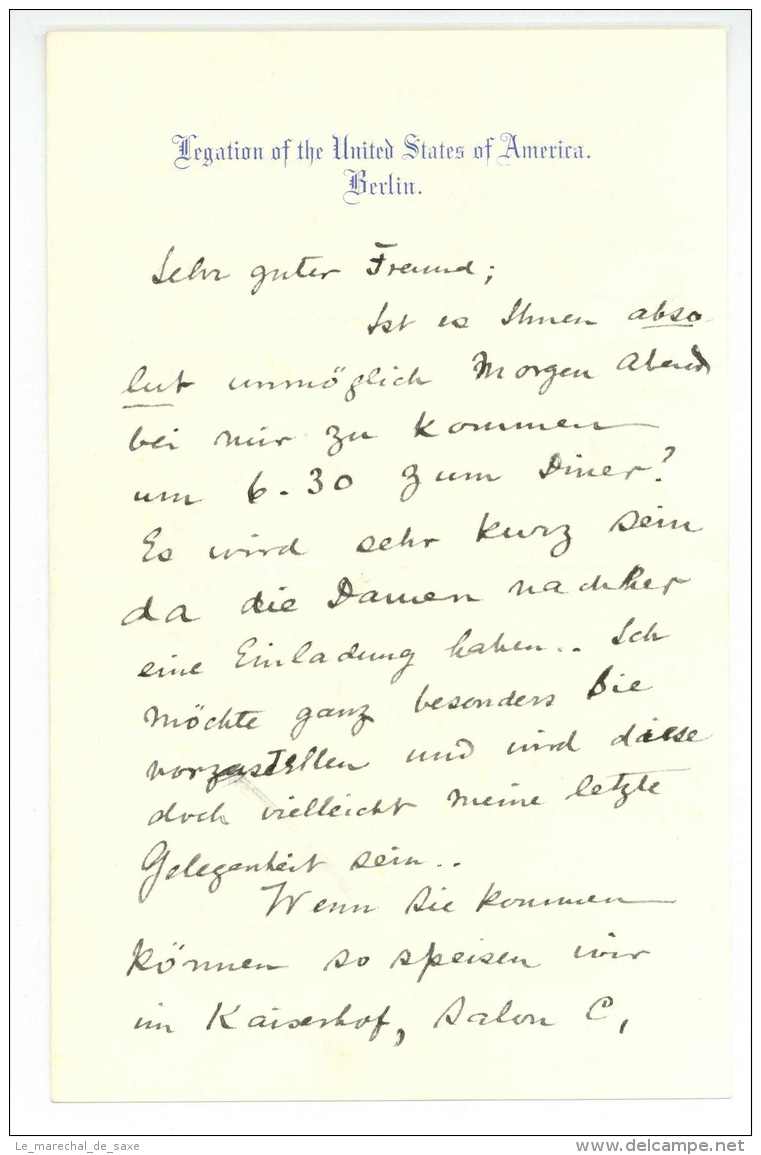 Legation of the United States of America.
Berlin.
Sehr guter Freund;
Ist es Ihnen abso
lut unmöglich Morgen Abend
bei mir zu kommen
um 6.30 zum Diner?
Es wird sehr kurz sein
da die Damen nachher
eine Einladung haben.. Ich
möchte ganz besonders Sie
vorzustellen und wird diese
doch vielleicht meine letzte
Gelegenheit sein..
Wenn Sie kommen
können so speisen wir
im Kaiserhof, Salon C,
Le_marechal_de_saxe
delcampe.net